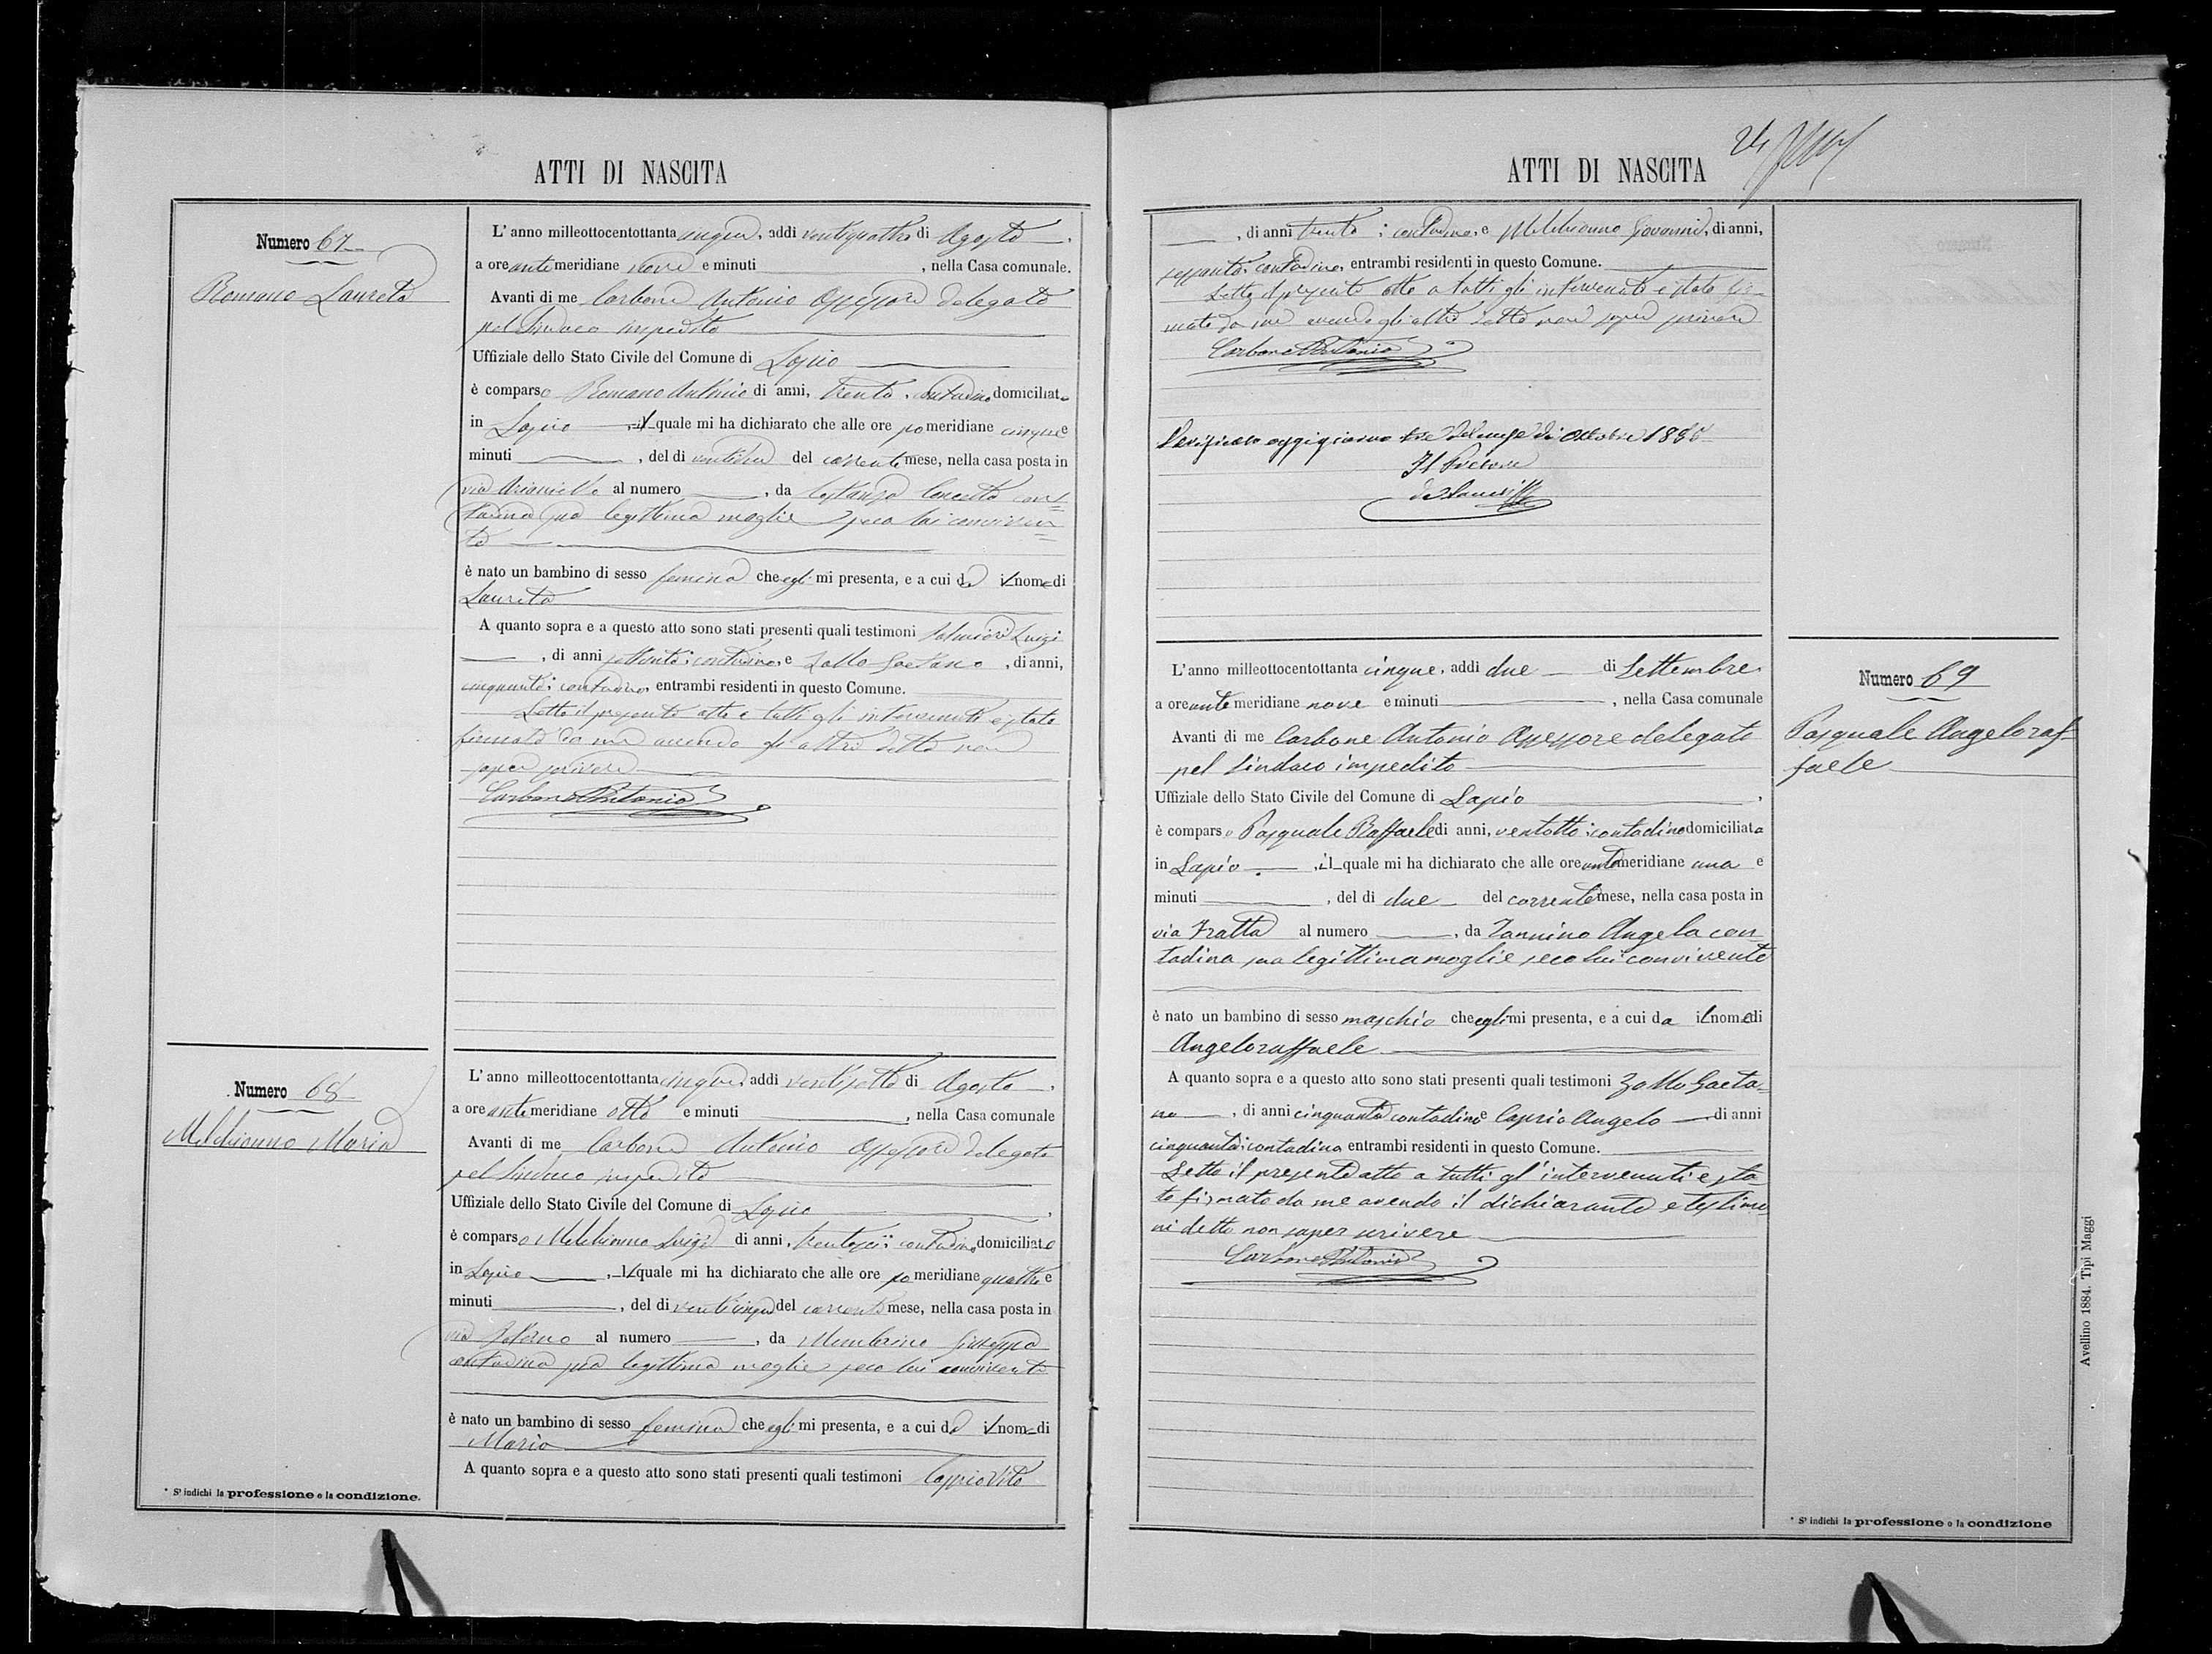 ATTI DI NASCITA
Numero 67
Romano Laureta
L'anno milleottocentottanta cinque, addi ventiquattro di Agosto,
a ore antemeridiane nove e minuti , nella Casa comunale.
Avanti di me Carbone Antonio Assessore delegato
pel Sindaco impedito
Uffiziale dello Stato Civile del Comune di Lapio
è comparso Romano Antonio di anni, trenta, contadino domiciliato
in Lapio , il quale mi ha dichiarato che alle ore pomeridiane cinque e
minuti , del di ventidue del corrente mese, nella casa posta in
via Arianiello al numero , da Costanza Concetta con=
tadina sua legittima moglie seco lui conviven=
te
è nato un bambino di sesso femina che egli mi presenta, e a cui da il nome di
Laureta
A quanto sopra e a questo atto sono stati presenti quali testimoni Luigi
, di anni contadino, e Zollo Gaetano , di anni,
cinquanta: contadino, entrambi residenti in questo Comune.
Letto il presente atto a tutti gli intervenuti e stato
firmato da me avendo gli altri detto non
saper scrivere
Carbone Antonio
Numero 68
Melchionno Maria
L'anno milleottocentottanta cinque, addi ventisette di Agosto,
a ore antemeridiane otto e minuti , nella Casa comunale
Avanti di me Carbone Antonio Assessore delegato
pel Sindaco impedito
Uffiziale dello Stato Civile del Comune di Lapio ,
è comparso Melchionno Luigi di anni, trentasei: contadino domiciliato
in Lapio , il quale mi ha dichiarato che alle ore pomeridiane quattro e
minuti , del di venticinque del corrente mese, nella casa posta in
via al numero , da Giuseppa
contadina sua legittima moglie, seco lui convivente
è nato un bambino di sesso femina che egli mi presenta, e a cui da il nome di
Maria
A quanto sopra e a questo atto sono stati presenti quali testimoni Caprio Vito
* Si indichi la professione o la condizione.
ATTI DI NASCITA
24
, di anni trenta: contadino, e Melchionno Giovanni, di anni,
sessanta: contadino, entrambi residenti in questo Comune.
Letto il presente atto a tutti gli intervenuti e stato fir=
mato da me avendo gli altri detto non saper scrivere
Carbone Antonio
Verificato oggi giorno tre del mese di Ottobre 1885
Il Pretore
L'anno milleottocentottanta cinque, addi due di Settembre
a ore antemeridiane nove e minuti , nella Casa comunale
Avanti di me Carbone Antonio Assessore delegato
pel Sindaco impedito
Uffiziale dello Stato Civile del Comune di Lapio ,
è comparso Pasquale Raffaele di anni, ventotto: contadino domiciliato
in Lapio , il quale mi ha dichiarato che alle ore antemeridiane una e
minuti , del di due del corrente mese, nella casa posta in
via Fratta al numero , da Iannino Angela con
tadina sua legittima moglie seco lui convivente
è nato un bambino di sesso maschio che egli mi presenta, e a cui da il nome di
Angeloraffaele
A quanto sopra e a questo atto sono stati presenti quali testimoni Zollo Gaeta=
no , di anni cinquanta contadino e Caprio Angelo di anni
cinquanta: contadino entrambi residenti in questo Comune.
Letto il presente atto a tutti gl'intervenuti e sta
to firmato da me avendo il dichiarante e testimo
ni detto non saper scrivere
Carbone Antonio
Numero 69
Pasquale Angeloraf=
faele
* Si indichi la professione o la condizione
Avellino 1884. Tipi Maggi